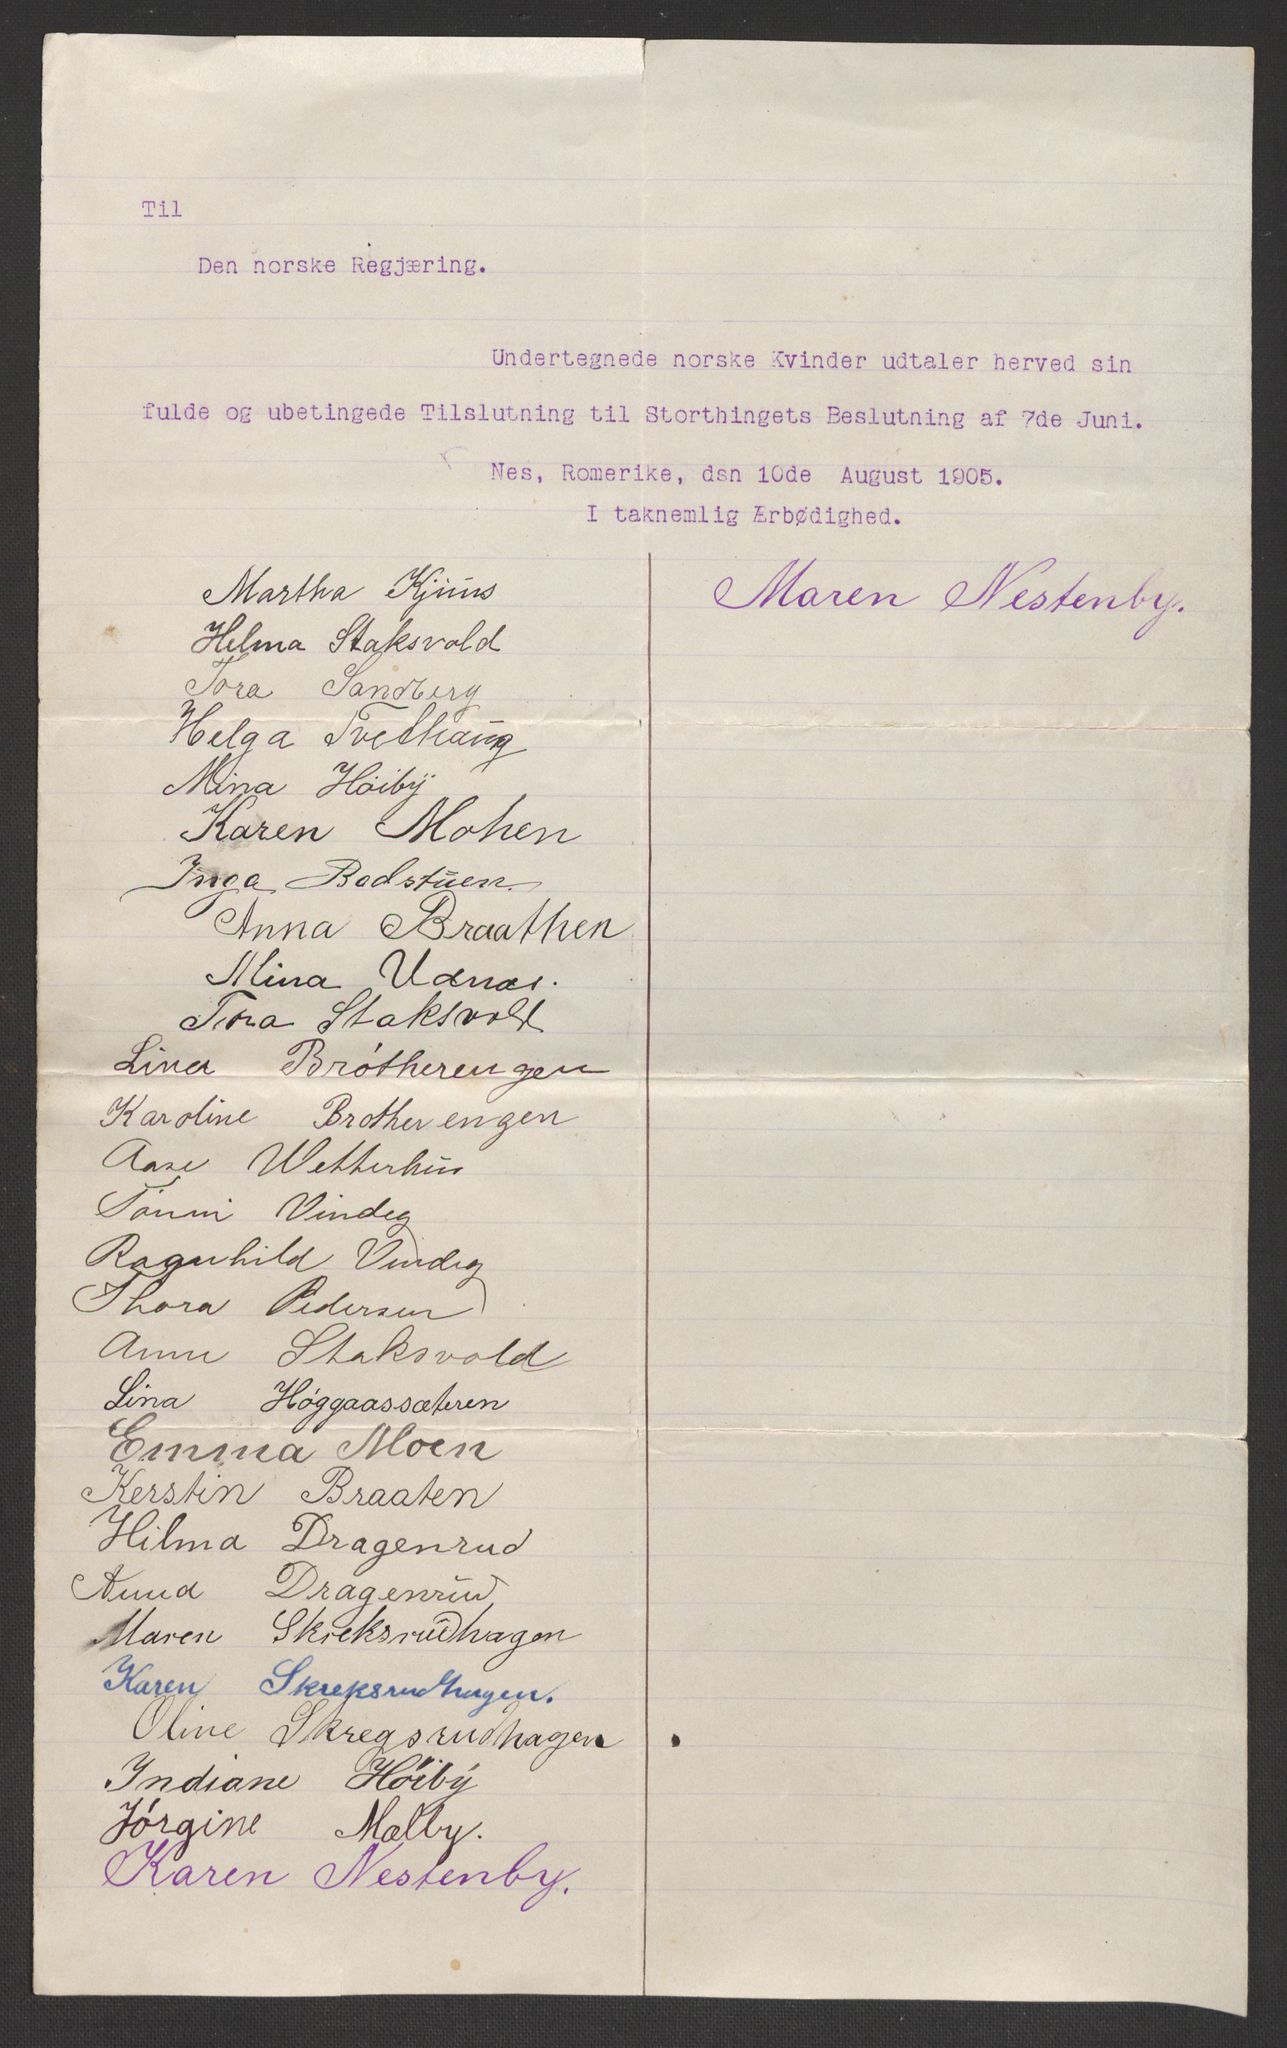 Til
Den norske Regjæring.
Undertegnede norske Kvinder udtaler herved sin
fulde og ubetingede Tilslutning til Storthingets Beslutning af 7de Juni.
Nes, Romerike, dsn 10de August 1905.
I taknemlig Ærbødighed.
Martha Kjuus
Helma Staksvold
Tora Sandberg
Helga Tvethaug
Mina Høiby
Karen Mohen
Inga Badstuen
Anna Braathen
Mina Udnæs.
Tora Staksvold
Lina Brótherengen
Karoline Brotherengen
Aase Wetterhus
Vindeg
Ragnhild Vindeg
Thora Pedersen
Anne Staksvold
Lina Höggaassæteren
Emma Moen
Kerstin Braaten
Hilma Dragenrud
Dragenrud
Maren Skreksrudhagen
Karen Skreksrudhagen.
Oline Skregsrudhagen.
Indiane Høiby
Jórgine Mælby.
Karen Nestenby.
Maren Nestenby.